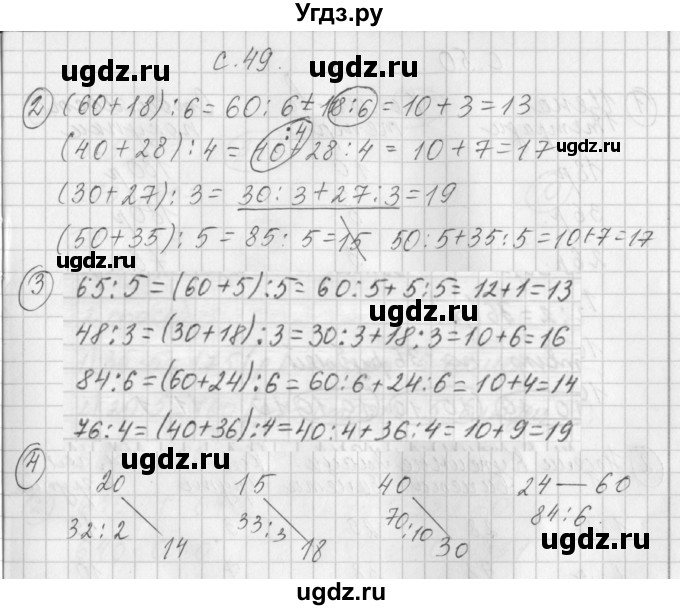 Угдз.ру
с. 49.
ugdz.ru ugdz.ru
② (60+18):6=60:6+18:6=10+3=13
(40+28):4=40:4+28:4=10+7=17 ugdz.ru
(30+27):3=30:3+27:3=19
(50+35):5=85:5=15 50:5+35:5=10+7=17
ugdz.ru ugdz.ru
③ 65:5=(60+5):5=60:5+5:5=12+1=13
ugdz.ru
48:3=(30+18):3=30:3+18:3=10+6=16
84:6=(60+24):6=60:6+24:6=10+4=14
ugdz.ru
76:4=(40+36):4=40:4+36:4=10+9=19
ugdz.ru ugdz.ru
④ 20 15 40 24 — 60
32:2 33:3 70:10 84:6
14 18 30
ugdz.ru
ugdz.ru